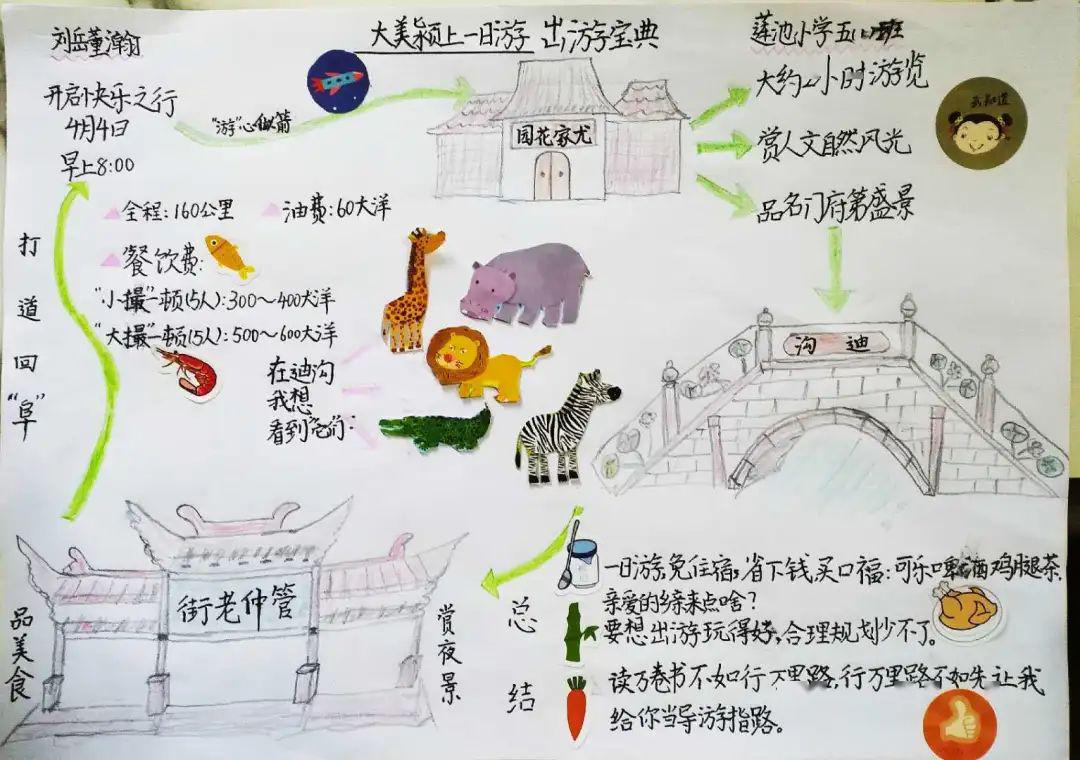 刘岳董瀚
大美颍上一日游 出游宝典
莲池小学五
开启快乐之行
4月4日
早上8:00
"游"心似箭
园花家尤
大约2小时游览
赏人文自然风光
品名门府第盛景
我知道
全程:160公里
油费:60大洋
餐饮费:
"小撮"一顿(5人):300～400大洋
"大撮"一顿(5人):500～600大洋
打道回"阜"
在迪沟
我想
看到"它们":
沟 迪
街老仲管
品美食
赏夜景
总结
一日游,免住宿,省下钱,买口福:可乐啤酒鸡腿茶.
亲爱的 亲来点啥?
要想出游玩得好,合理规划少不了。
读万卷书不如行万里路,行万里路不如先让我
给你当导游指路。